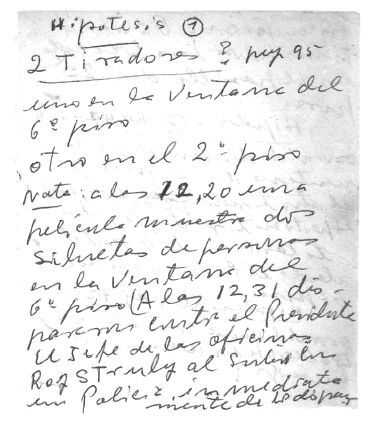 Hipotesis ①
2 Tiradores ? pag 95
uno en la Ventana del
6º piso
otro en el 2º piso
Nota: a las 12,20 una
película muestra dos
siluetas de personas
en la Ventana del
6º piso (A las 12,31 dis-
pararon contra el Presidente
El Jefe de las oficinas
Roy Struly al subir con
un Policia inmediata
mente de los disparos